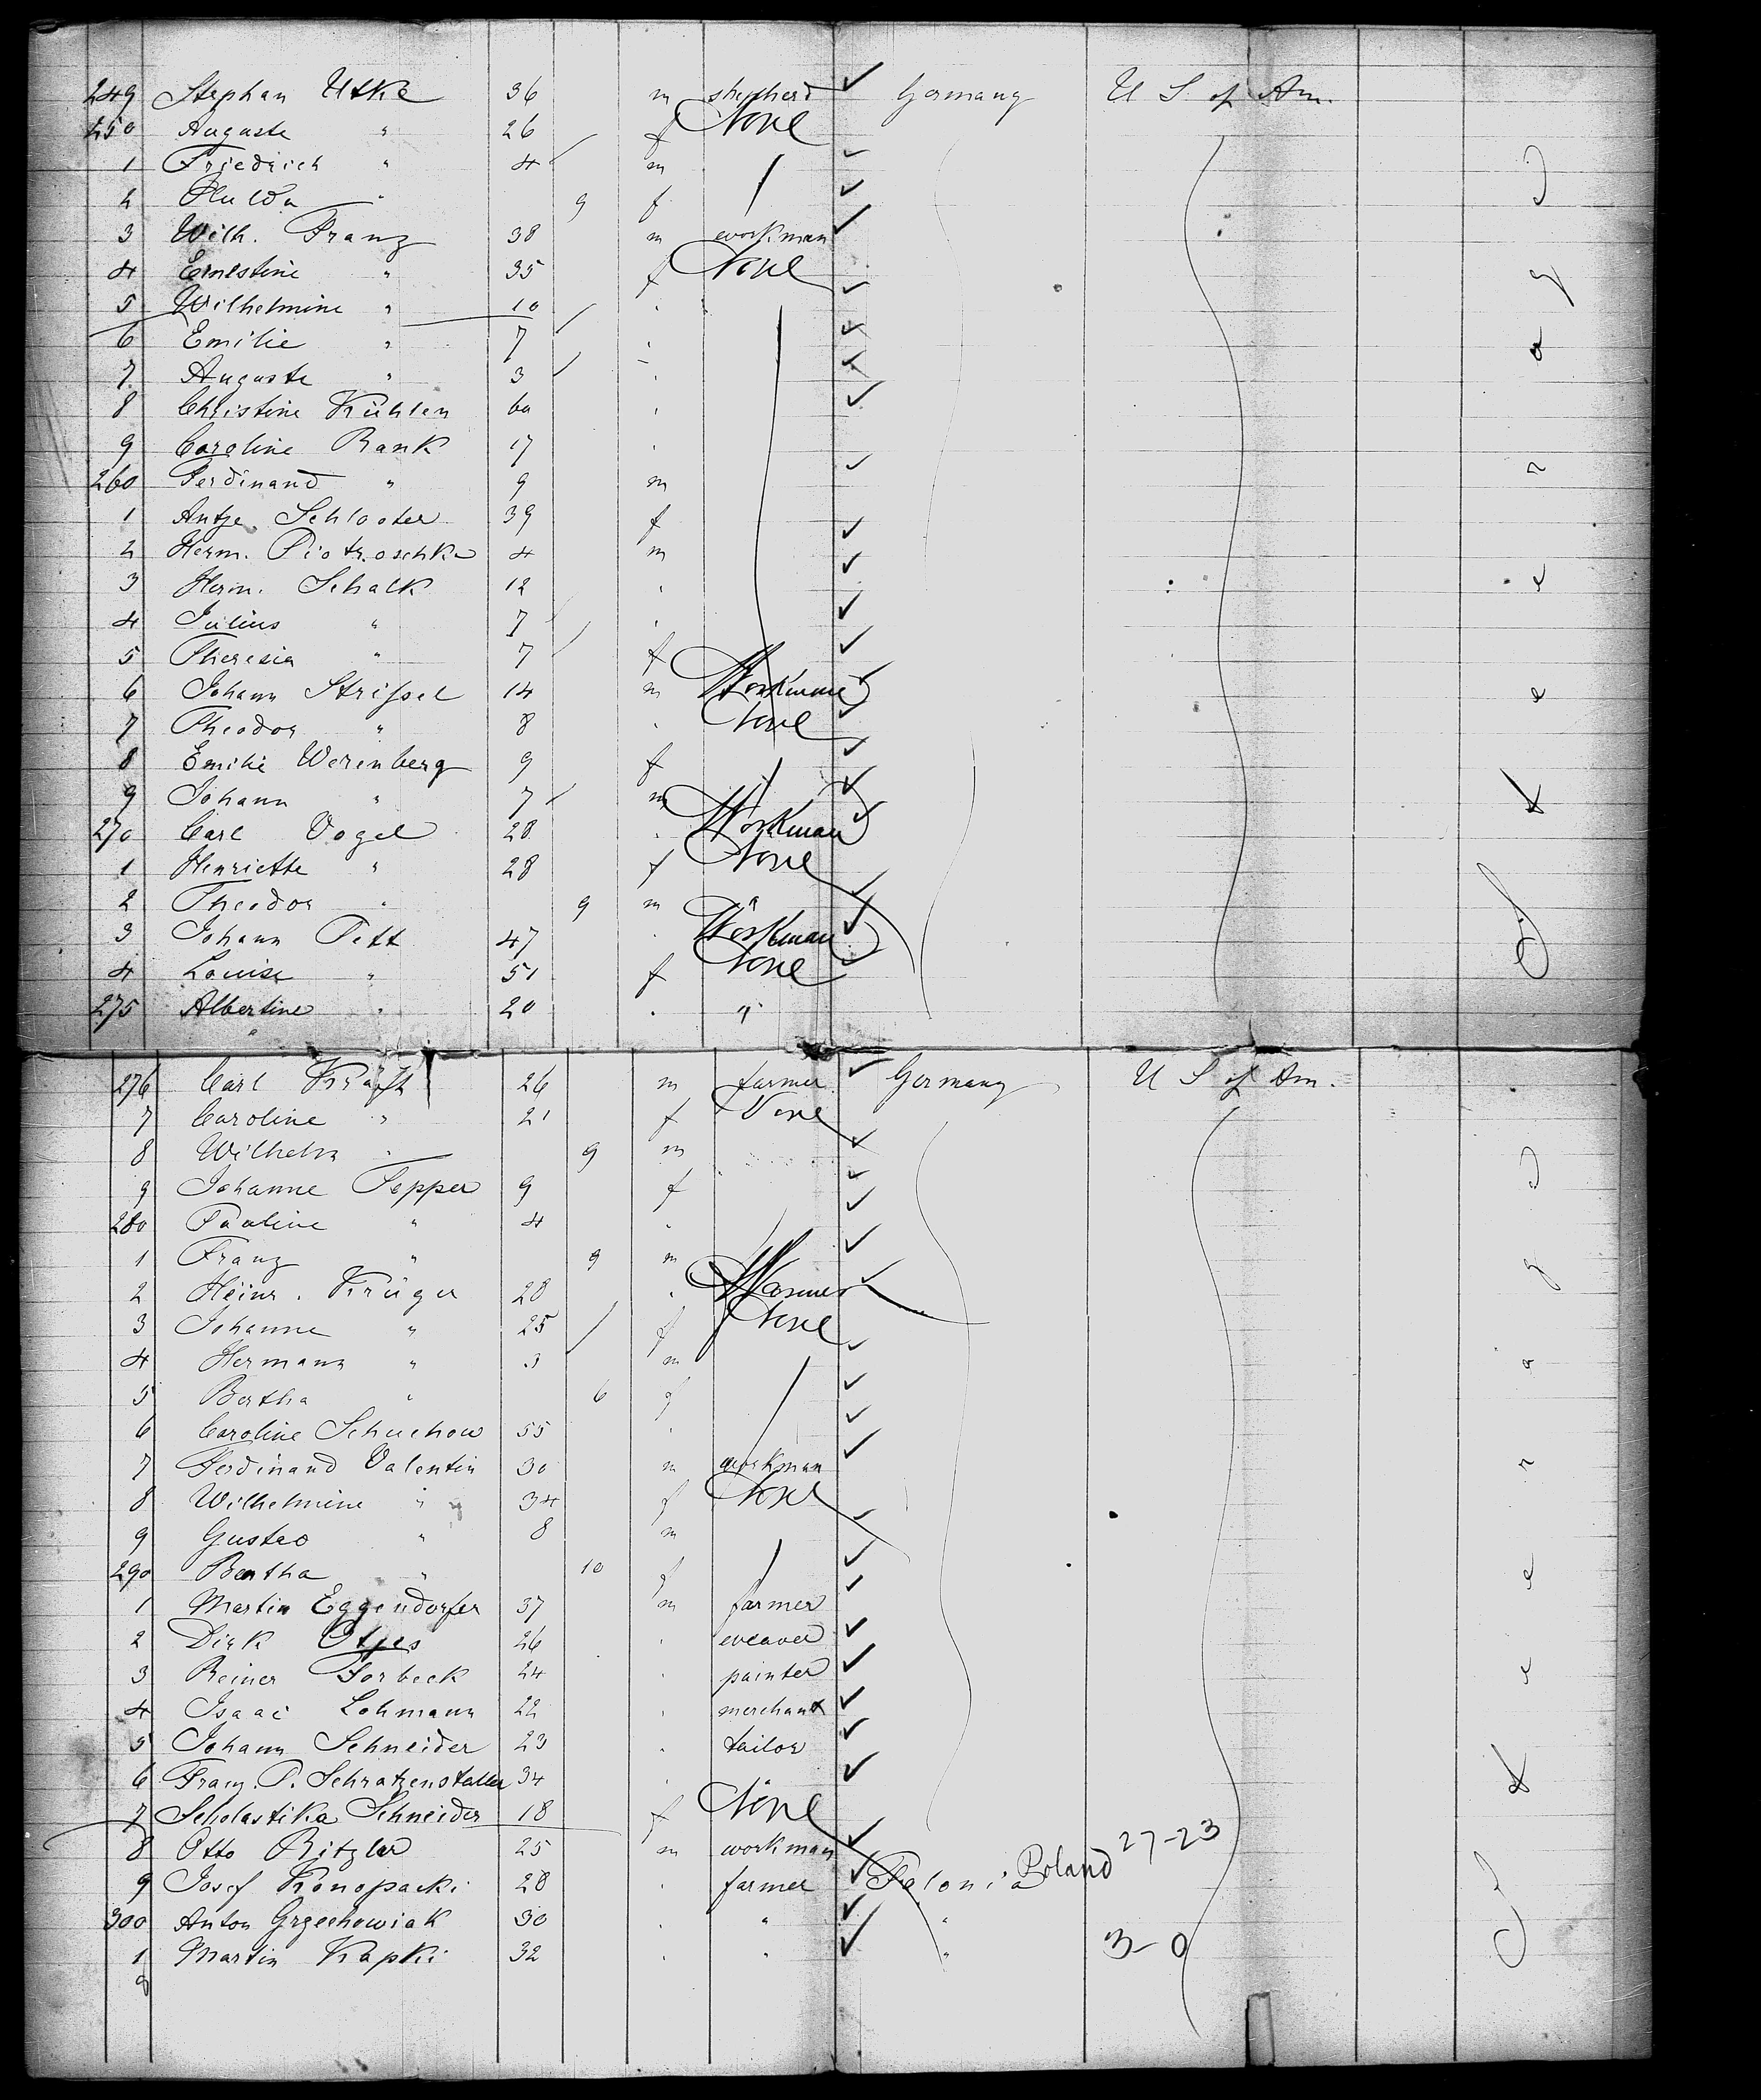 249 Stephan Utke 36 m shepherd Germany U S of Am.
250 Auguste " 26 f None
1 Friedrich " 4 m
2 Hulda " 9 f
3 Wilh. Franz 38 m workman
4 Ernestine " 35 f None
5 Wilhelmine " 10 "
6 Emilie " 7 "
7 Auguste " 3 "
8 Christine Kühlen 60 "
9 Caroline Rank 17 "
260 Ferdinand " 9 m
1 Antje Schlooter 39 f
2 Herm. Piotroschke 4 m
3 Herm. Schalk 12 "
4 Julius " 7 "
5 Theresia " 7 f
6 Johann Strissel 14 m Workman
7 Theodor " 8 " None
8 Emilie Werenberg 9 f
9 Johann " 7 m
270 Carl Vogel 28 " Workman
1 Henriette " 28 f None
2 Theodor " 9 m "
3 Johann Pett 47 " Workman
4 Louise " 51 f None
275 Albertine " 20 " "
Steerage
276 Carl Kräft 26 m farmer Germany U S of Am.
7 Caroline " 21 f None
8 Wilhelm " 9 m
9 Johanne Pepper 9 f
280 Pauline " 4 "
1 Franz " 9 m
2 Heinr. Krüger 28 " Farmer
3 Johanne " 25 f None
4 Hermann " 3 m
5 Bertha " 6 f
6 Caroline Schuchow 55 "
7 Ferdinand Valentin 30 m workman
8 Wilhelmine " 34 f None
9 Gustav " 8 m
290 Bertha " 10 f
1 Martin Eggendorfer 37 m farmer
2 Dirk Otjes 26 " weaver
3 Reiner Forbeck 24 " painter
4 Isaac Lohmann 22 " merchant
5 Johann Schneider 23 " tailor
6 Franz P. Schratzenstaller 34 " "
7 Scholastika Schneider 18 f None
8 Otto Ritzler 25 m workman
9 Josef Konopacki 28 " farmer Polonia Poland 27-23
300 Anton Grzechowiak 30 " " "
1 Martin Kapki 32 " " " 3-0
Steerage